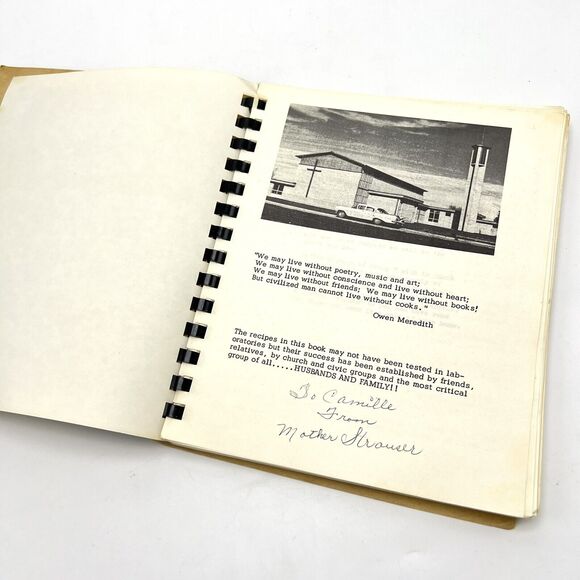 "We may live without poetry, music and art;
We may live without conscience and live without heart;
We may live without friends; We may live without books;
But civilized man cannot live without cooks."
Owen Meredith
The recipes in this book may not have been tested in lab-
oratories but their success has been established by friends,
relatives, by church and civic groups and the most critical
group of all.....HUSBANDS AND FAMILY!!
To Camille
From
Mother Strouser